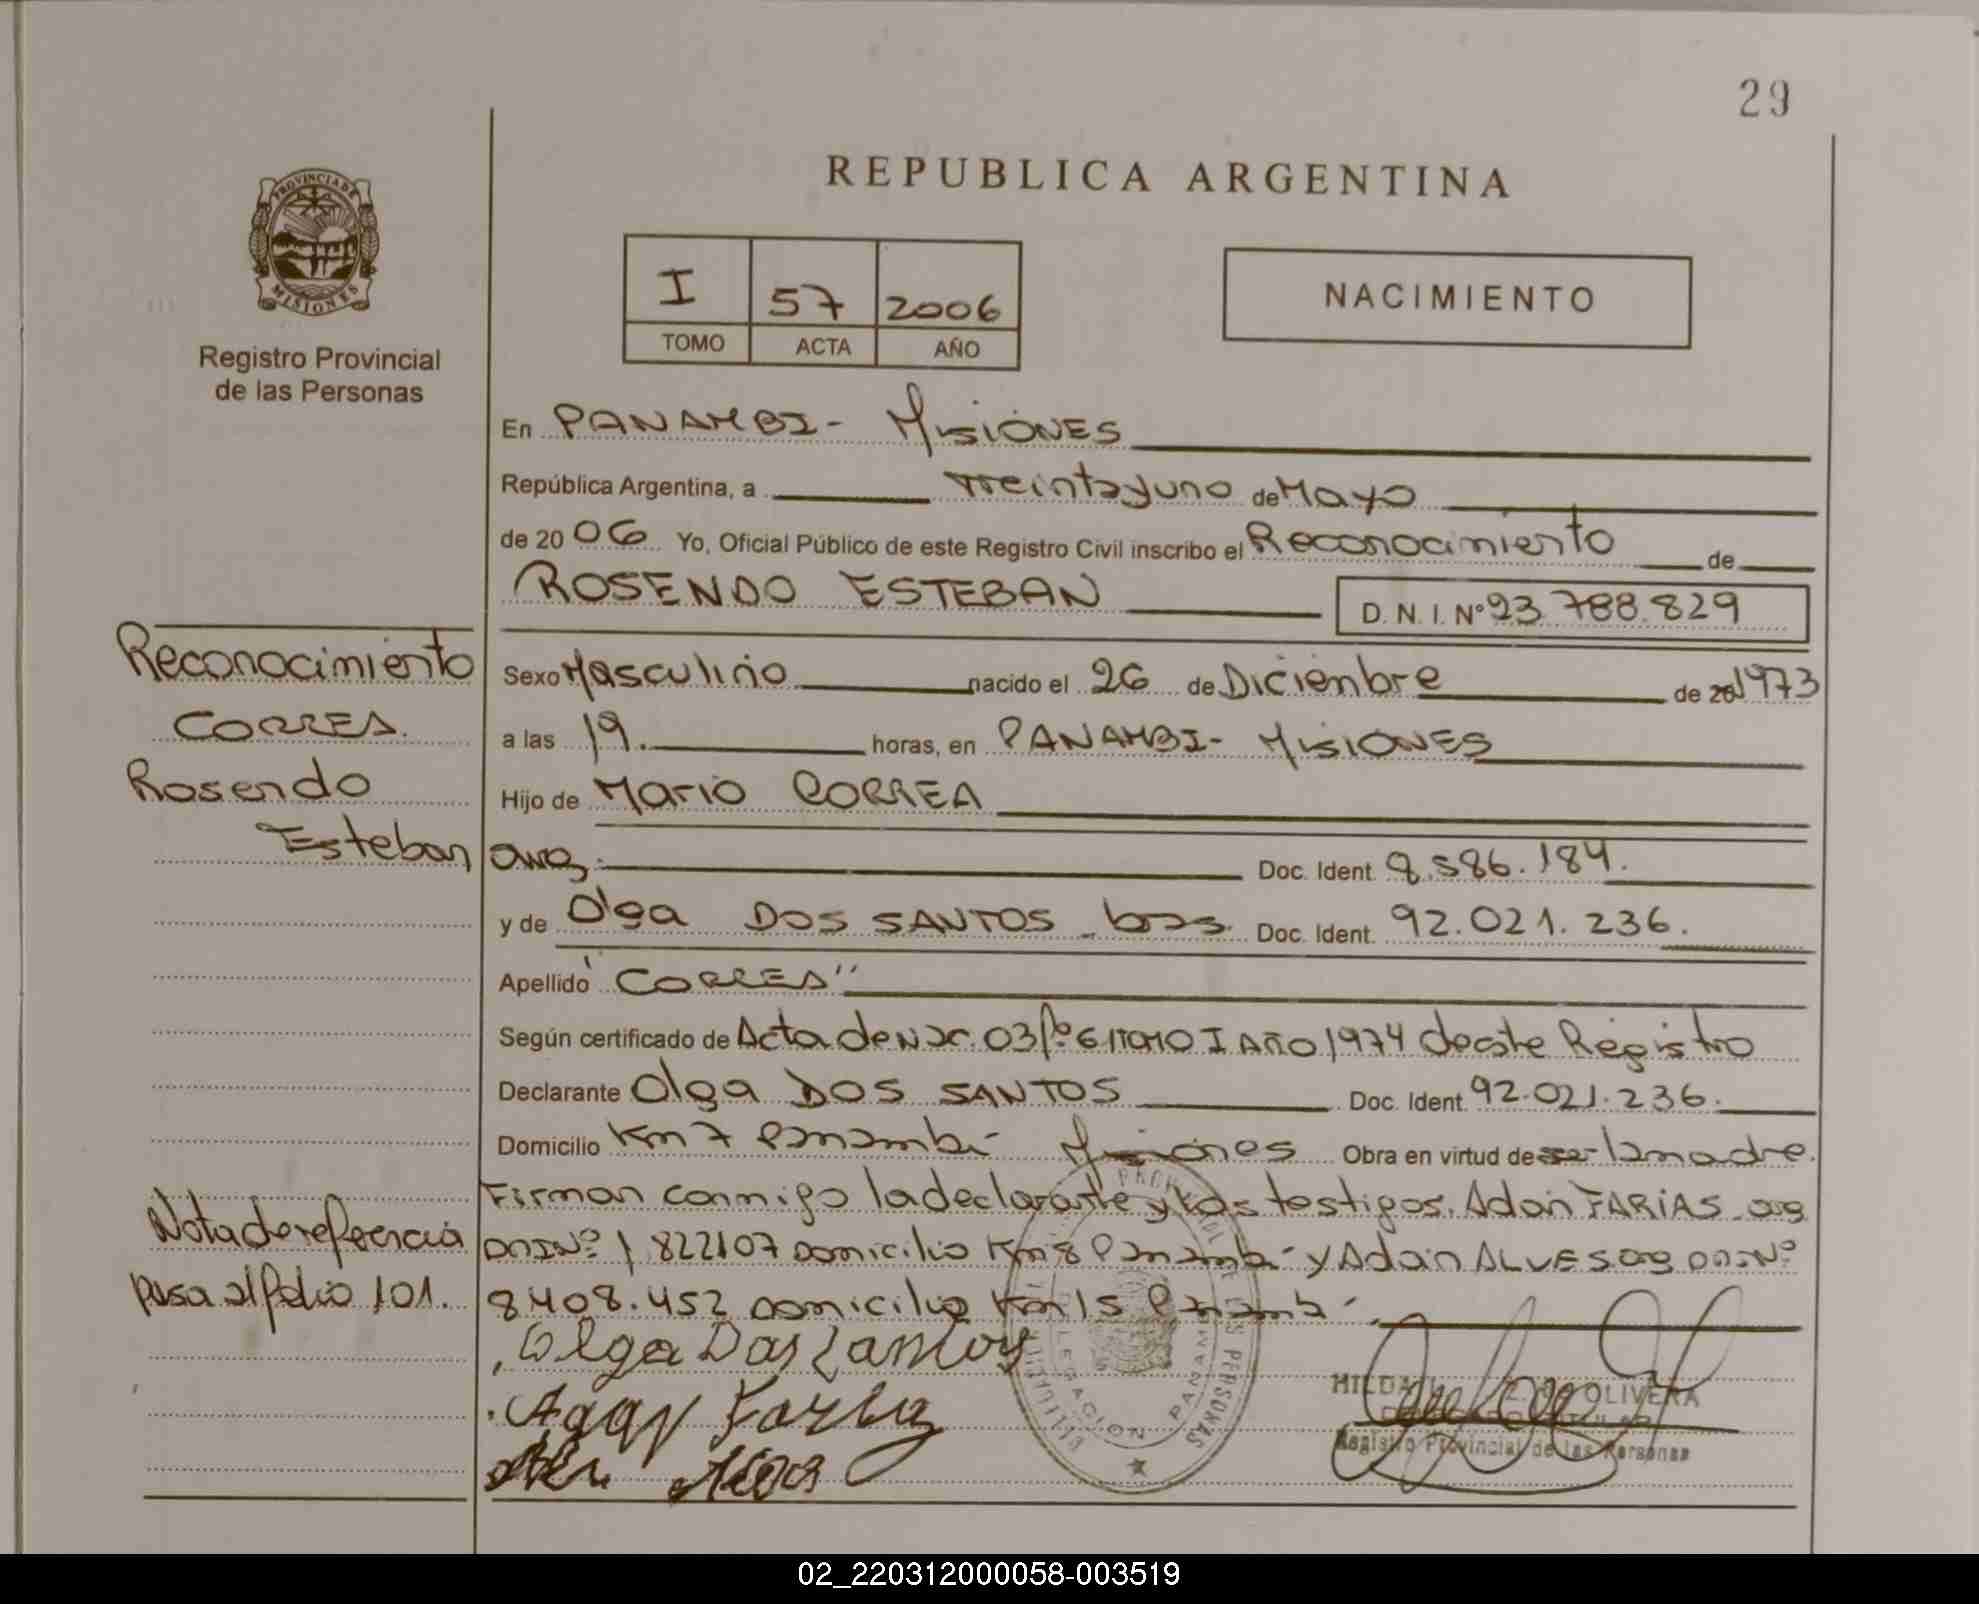 29
PROVINCIA DE
MISIONES
Registro Provincial
de las Personas
REPUBLICA ARGENTINA
I 57 2006
TOMO ACTA AÑO
NACIMIENTO
En PANAMBI - MISIONES
República Argentina, a treintayuno de Mayo
de 2006 Yo, Oficial Público de este Registro Civil inscribo el Reconocimiento de
ROSENDO ESTEBAN D. N. I. Nº 23.788.829
Reconocimiento
CORREA.
Rosendo
Esteban
Sexo Masculino nacido el 26 de Diciembre de 20 1973
a las 19. horas, en PANAMBI - MISIONES
Hijo de Mario CORREA
arg. Doc. Ident. 8.586.184.
y de Olga DOS SANTOS - bras. Doc. Ident. 92.021.236.
Apellido "CORREA"
Según certificado de Acta de Nac. 03 Fº 6 TOMO I AÑO 1974 de este Registro
Declarante Olga DOS SANTOS Doc. Ident. 92.021.236.
Domicilio Km 7 Panambí Misiones Obra en virtud de ser la madre.
Firman conmigo la declarante y los testigos. Adán FARIAS - arg
DNI Nº 1 822107 domicilio Km 8 Panambí y Adán ALVES arg DNI Nº
8.408.452 domicilio Km 15 Panambí
Nota de referencia
pasa al folio 101.
Olga Dos Santos
Farias
DELEGACION PANAMBI
OLIVERA
Registro Provincial de las Personas
02_220312000058-003519